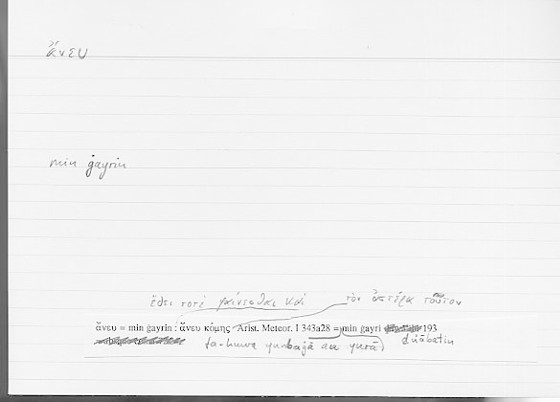 ἄνευ
min ġayrin
ἔστι ποτὲ φαίνεσθαι καὶ τὸν ἀστέρα τοῦτον
ἄνευ = min ġayrin : ἄνευ κόμης Arist. Meteor. I 343a28 = min ġayri 193
fa-huwa yanbaġī an yurā ḏuʾābatin